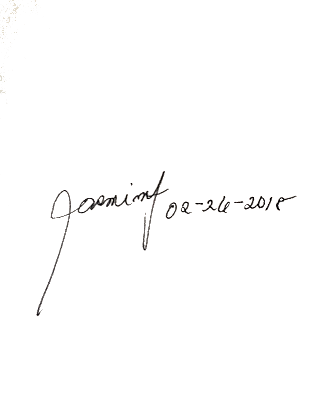 Jasminf 02-26-2018